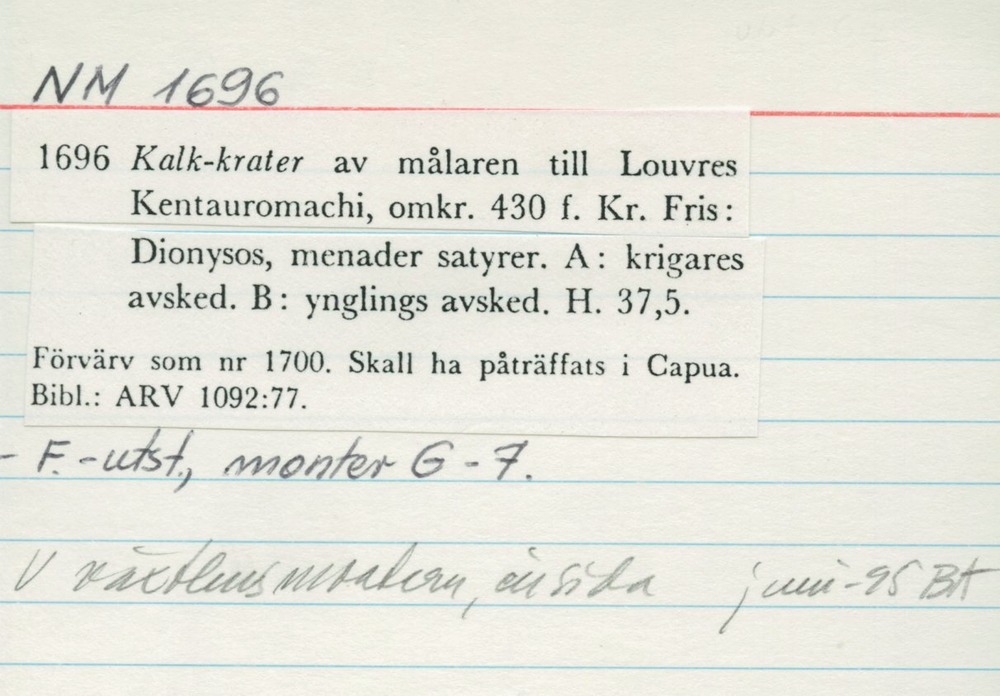 NM 1696
1696 Kalk-krater av målaren till Louvres
Kentauromachi, omkr. 430 f. Kr. Fris:
Dionysos, menader satyrer. A: krigares
avsked. B: ynglings avsked. H. 37,5.
Förvärv som nr 1700. Skall ha påträffats i Capua.
Bibl.: ARV 1092:77.
- F.-utst., monter G-7.
V växthusmontern, insida juni-95 BA